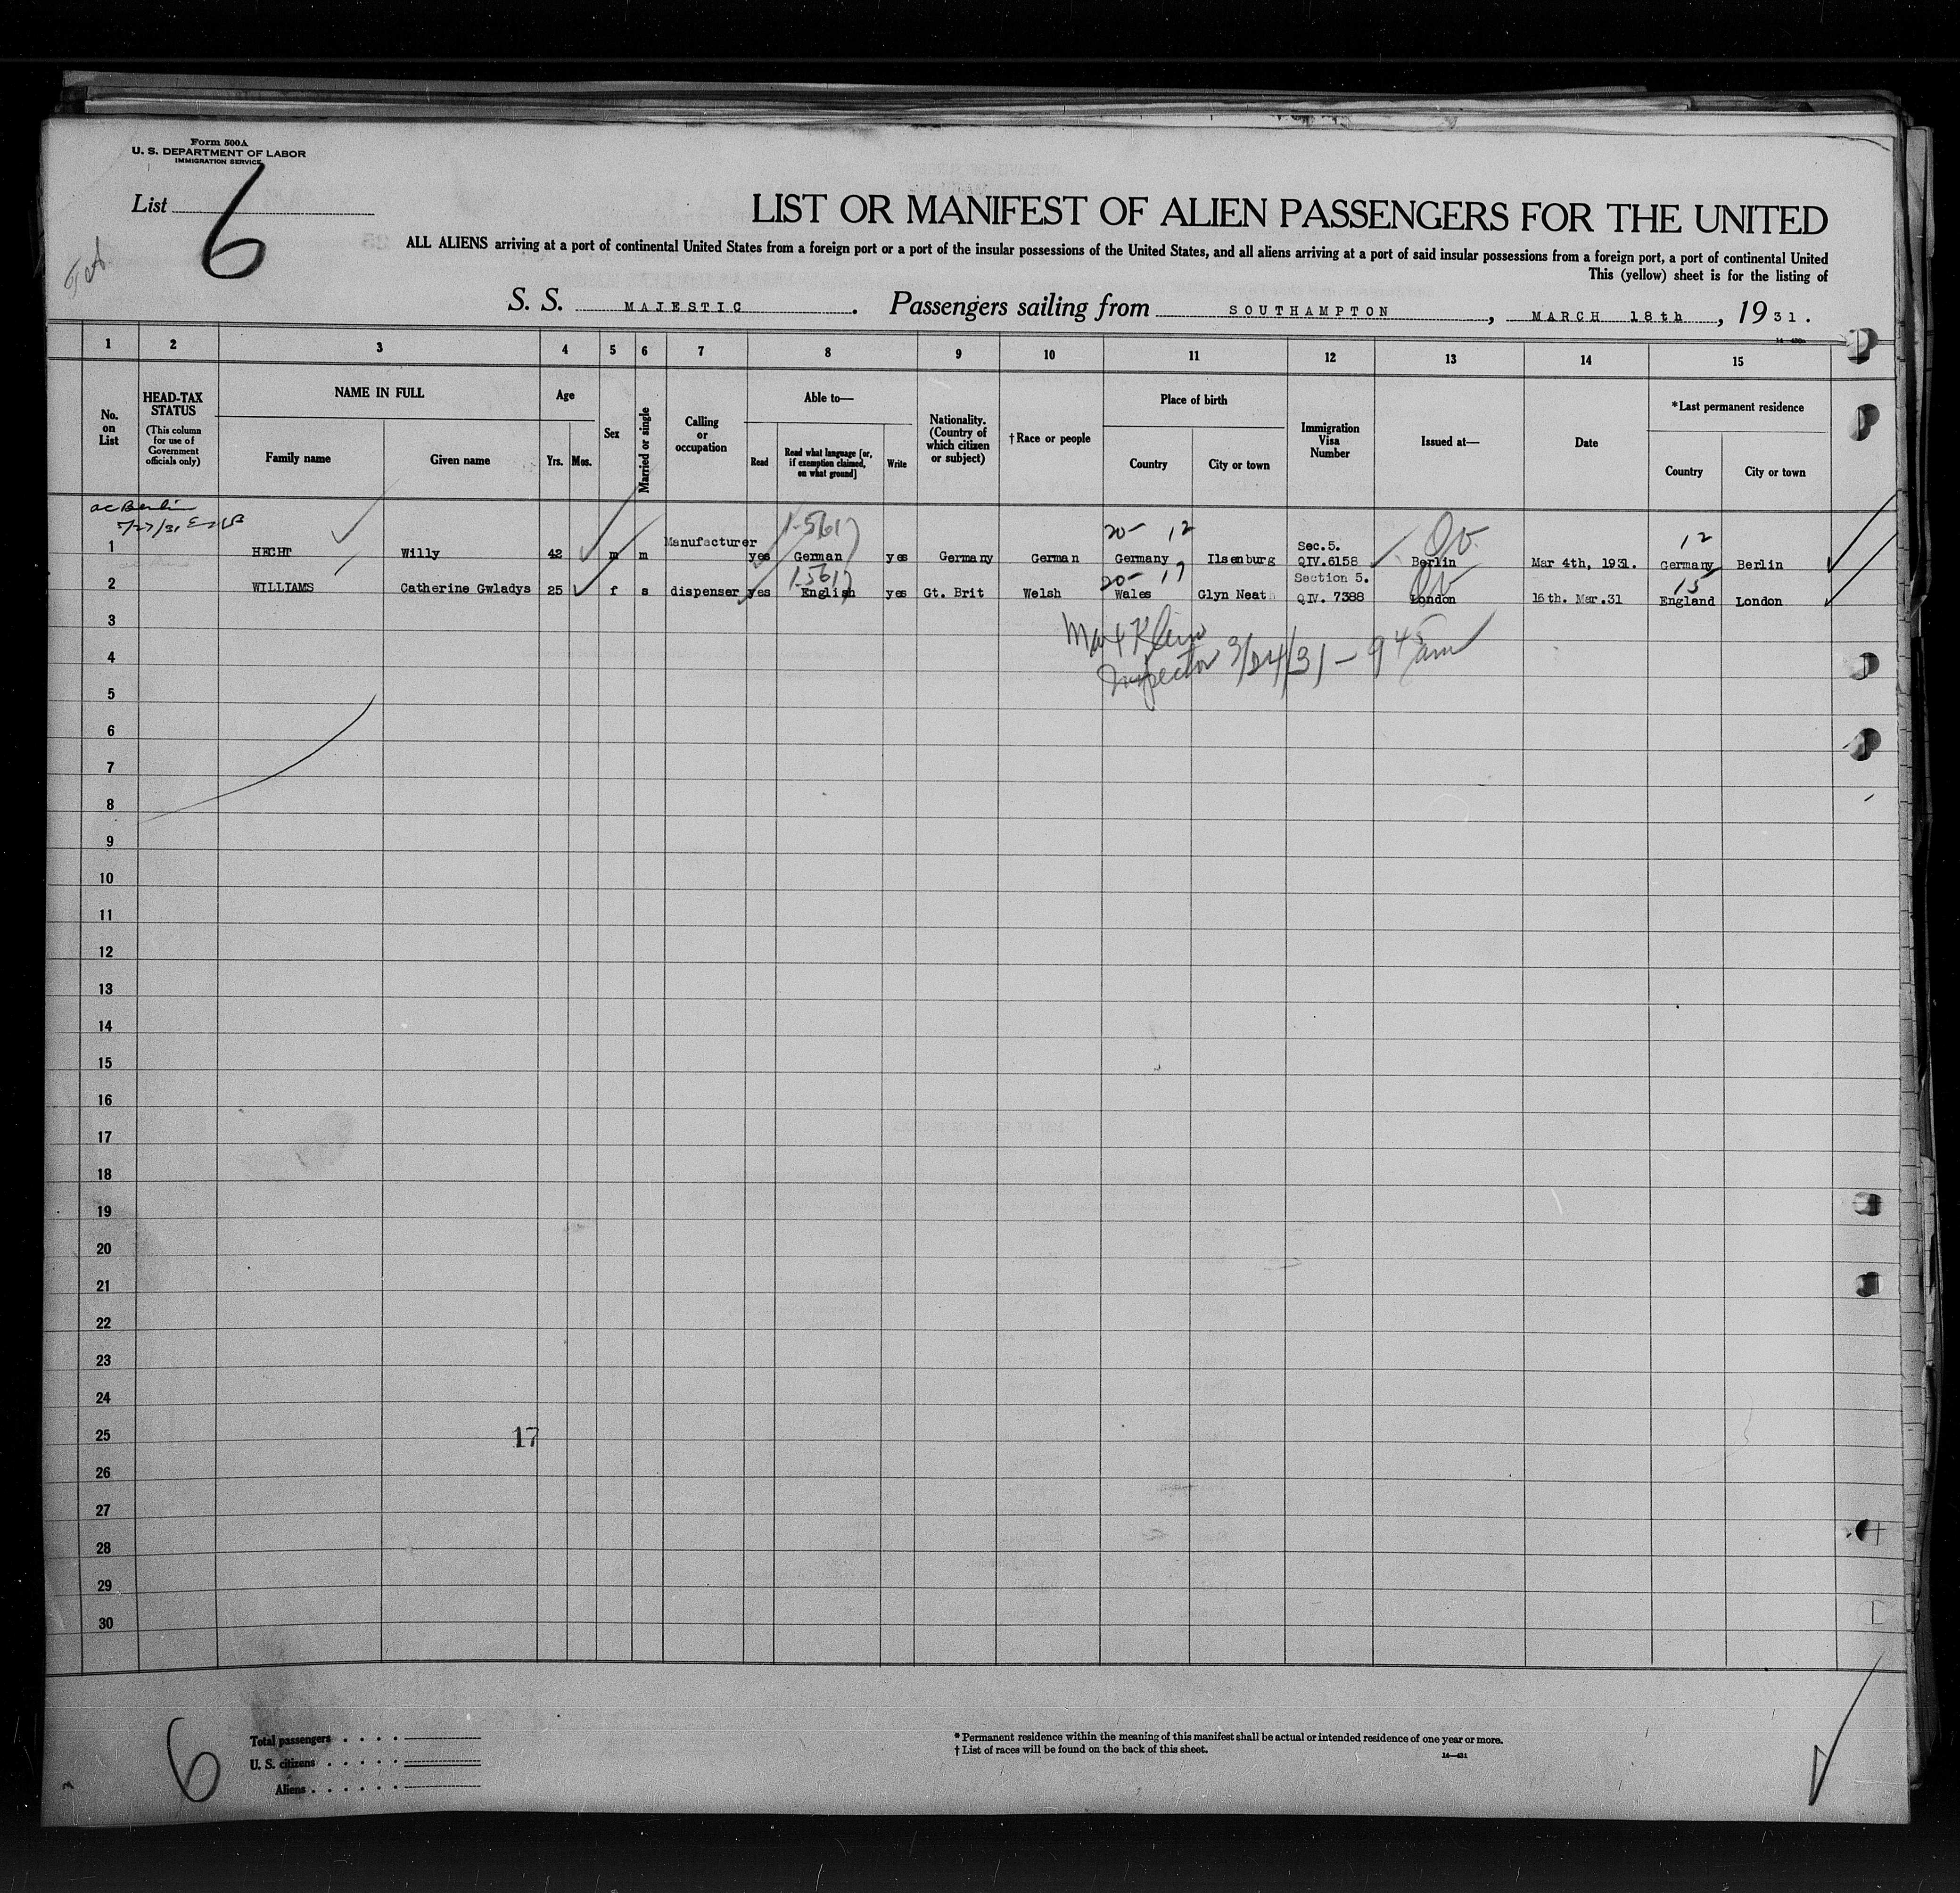 Form 500A
U. S. DEPARTMENT OF LABOR
IMMIGRATION SERVICE
List 6
LIST OR MANIFEST OF ALIEN PASSENGERS FOR THE UNITED
ALL ALIENS arriving at a port of continental United States from a foreign port or a port of the insular possessions of the United States, and all aliens arriving at a port of said insular possessions from a foreign port, a port of continental United
This (yellow) sheet is for the listing of
S. S. MAJESTIC. Passengers sailing from SOUTHAMPTON, MARCH 18th, 1931.
1 2 3 4 5 6 7 8 9 10 11 12 13 14 15
No. on List
HEAD-TAX STATUS
(This column for use of Government officials only)
NAME IN FULL
Family name
Given name
Age
Yrs. Mos.
Sex
Married or single
Calling or occupation
Able to—
Read
Read what language [or, if exemption claimed, on what ground]
Write
Nationality. (Country of which citizen or subject)
†Race or people
Place of birth
Country
City or town
Immigration Visa Number
Issued at—
Date
*Last permanent residence
Country
City or town
Berlin
1-5617 20- 12 12
1 HECHT Willy 42 m m Manufacturer yes German yes Germany German Germany Ilsenburg Sec.5. QIV.6158 Berlin Mar 4th, 1931. Germany Berlin
1-5617 20- 17 15
2 WILLIAMS Catherine Gwladys 25 f s dispenser yes English yes Gt. Brit Welsh Wales Glyn Neath Section 5. QIV. 7388 London 16th. Mar.31 England London
3
Max Klein
4
Inspector 3/24/31 - 9 45 am
5
6
7
8
9
10
11
12
13
14
15
16
17
18
19
20
21
22
23
24
25
17
26
27
28
29
30
6
Total passengers . . . .
U. S. citizens . . . . .
Aliens . . . . . .
* Permanent residence within the meaning of this manifest shall be actual or intended residence of one year or more.
† List of races will be found on the back of this sheet.
14—431